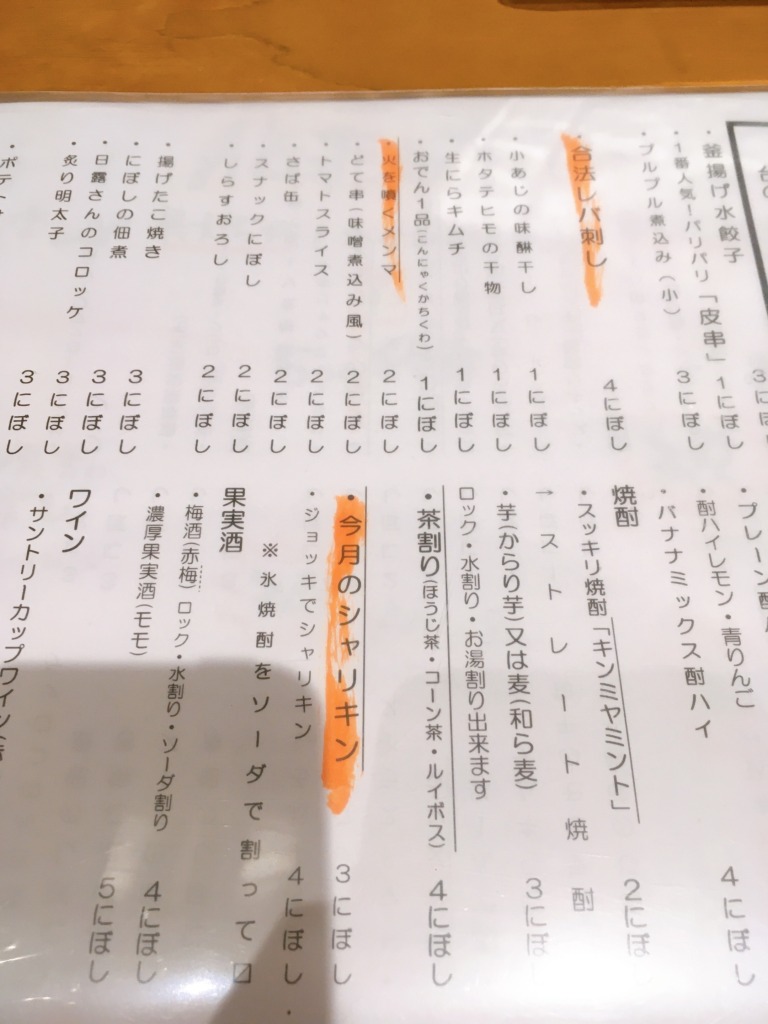 釜揚げ水餃子
・1番人気!パリパリ「皮串」 1にぼし
・プルプル煮込み(小) 3にぼし
・合法レバ刺し 4にぼし
・小あじの味醂干し 1にぼし
・ホタテヒモの干物 1にぼし
・生にらキムチ 1にぼし
・おでん1品(こんにゃくかちくわ) 1にぼし
・火を噴くメンマ 2にぼし
・どて串(味噌煮込み風) 2にぼし
・トマトスライス 2にぼし
・さば缶 2にぼし
・スナックにぼし 2にぼし
・しらすおろし 2にぼし
・揚げたこ焼き 3にぼし
・にぼしの佃煮 3にぼし
・日露さんのコロッケ 3にぼし
・炙り明太子 3にぼし
・プレーン酎
・酎ハイレモン・青りんご 4にぼし
・バナナミックス酎ハイ
焼酎
・スッキリ焼酎「キンミヤミント」 2にぼ
→ストレート焼酎
・芋(からり芋)又は麦(和ら麦) 3にぼ
ロック・水割り・お湯割り出来ます
・茶割り(ほうじ茶・コーン茶・ルイボス) 4にぼし
・今月のシャリキン 3にぼし
・ジョッキでシャリキン 4にぼし
※氷焼酎をソーダで割って〼
果実酒
・梅酒(赤梅)ロック・水割り・ソーダ割り 4にぼし
・濃厚果実酒(モモ) 5にぼし
ワイン
・サントリーカップワイン